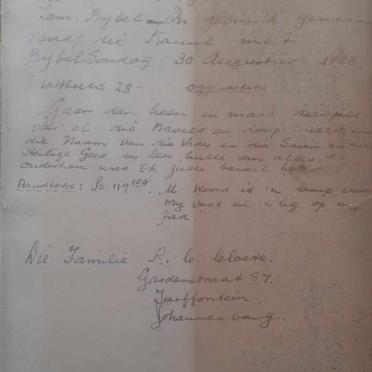 Fam. Bybel - In gebruik geneem
vanaf die Kansel met
Bybel Sondag, 30 Augustus 1958
Mattheus 28 -
Gaan dan heen en maak dissipels
van al die nasies en doop hulle in
die Naam van die Vader en die Seun en die
Heilige Gees en leer hulle om alles te
onderhou wat Ek julle beveel het
Randteks: Ps. 119 "U Woord is 'n lamp voor
my voet en 'n lig op my
pad.
Die Familie R. C. Cloete.
Gardenstraat 87.
Turffontein.
Johannesburg.